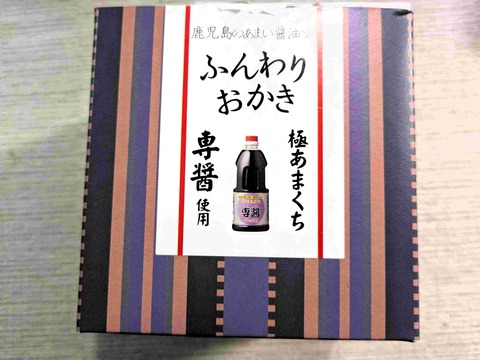 鹿児島のあまい醤油の
ふんわり
おかき
極あまくち
専醤
使用
専醤